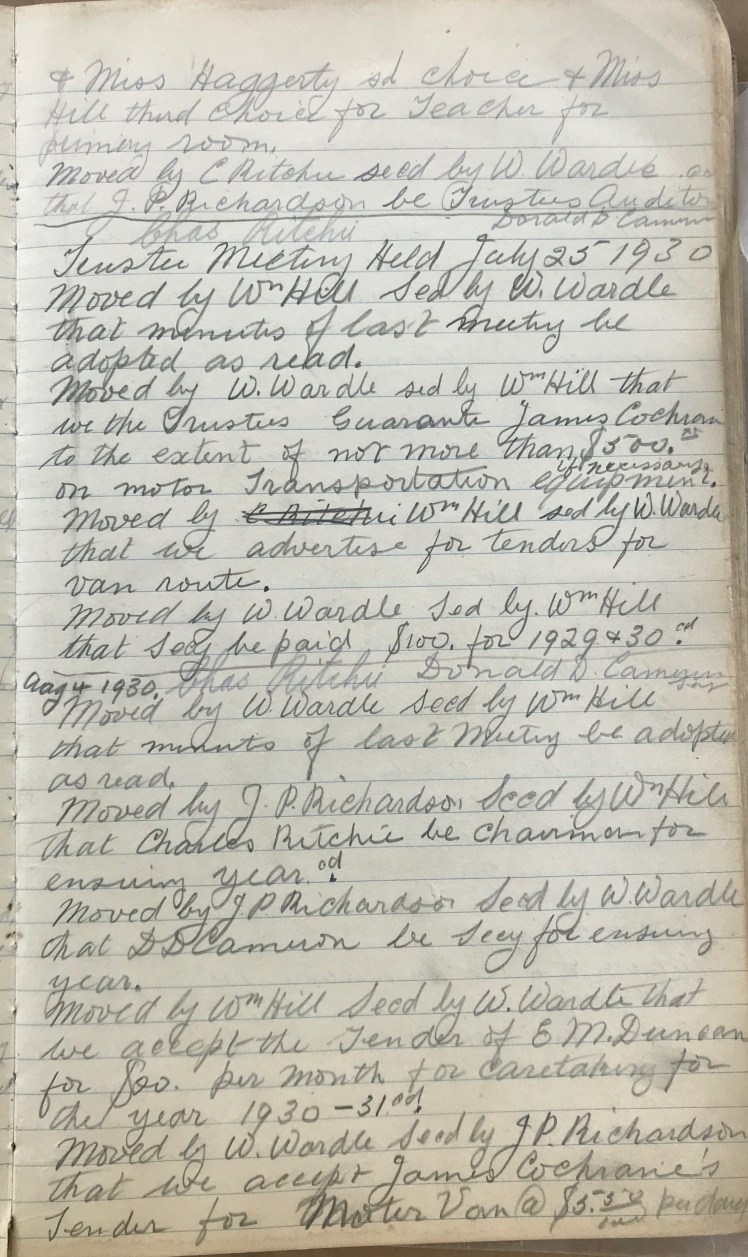 & Miss Haggerty sd choice & Miss
Hill third choice for Teacher for
primary room.
Moved by C Ritchie secd by W. Wardle
that J. P. Richardson be Trustee Auditor
Chas Ritchie Donald D Cameron
Trustee Meeting Held July 25 1930
Moved by Wm Hill Secd by W. Wardle
that minutes of last meeting be
adopted as read.
Moved by W. Wardle sed by Wm Hill that
we the Trustees Guarante James Cochran
to the extent of not more than $500.
if necessary
on motor Transportation equipment.
Moved by C Ritchie Wm Hill sed by W. Wardle
that we advertise for tenders for
van route.
Moved by W. Wardle Sed by. Wm Hill
that Secy be paid $100. for 1929 & 30. cd
Aug 4 1930. Chas Ritchie Donald D. Cameron
Moved by W. Wardle Secd by Wm Hill
that minuts of last Meeting be adopted
as read.
Moved by J. P. Richardson Secd by Wm Hill
that Charles Ritchie be Chairman for
ensuing year. cd
Moved by J. P. Richardson Secd by W. Wardle
that D D Cameron be Secy for ensuing
year.
Moved by Wm Hill Secd by W. Wardle that
we accept the Tender of E M. Duncan
for per month for caretaking for
the year 1930-31 cd.
Moved by W. Wardle Secd by J. P. Richardson
that we accept James Cochrane's
Tender for Moter Van @ per day